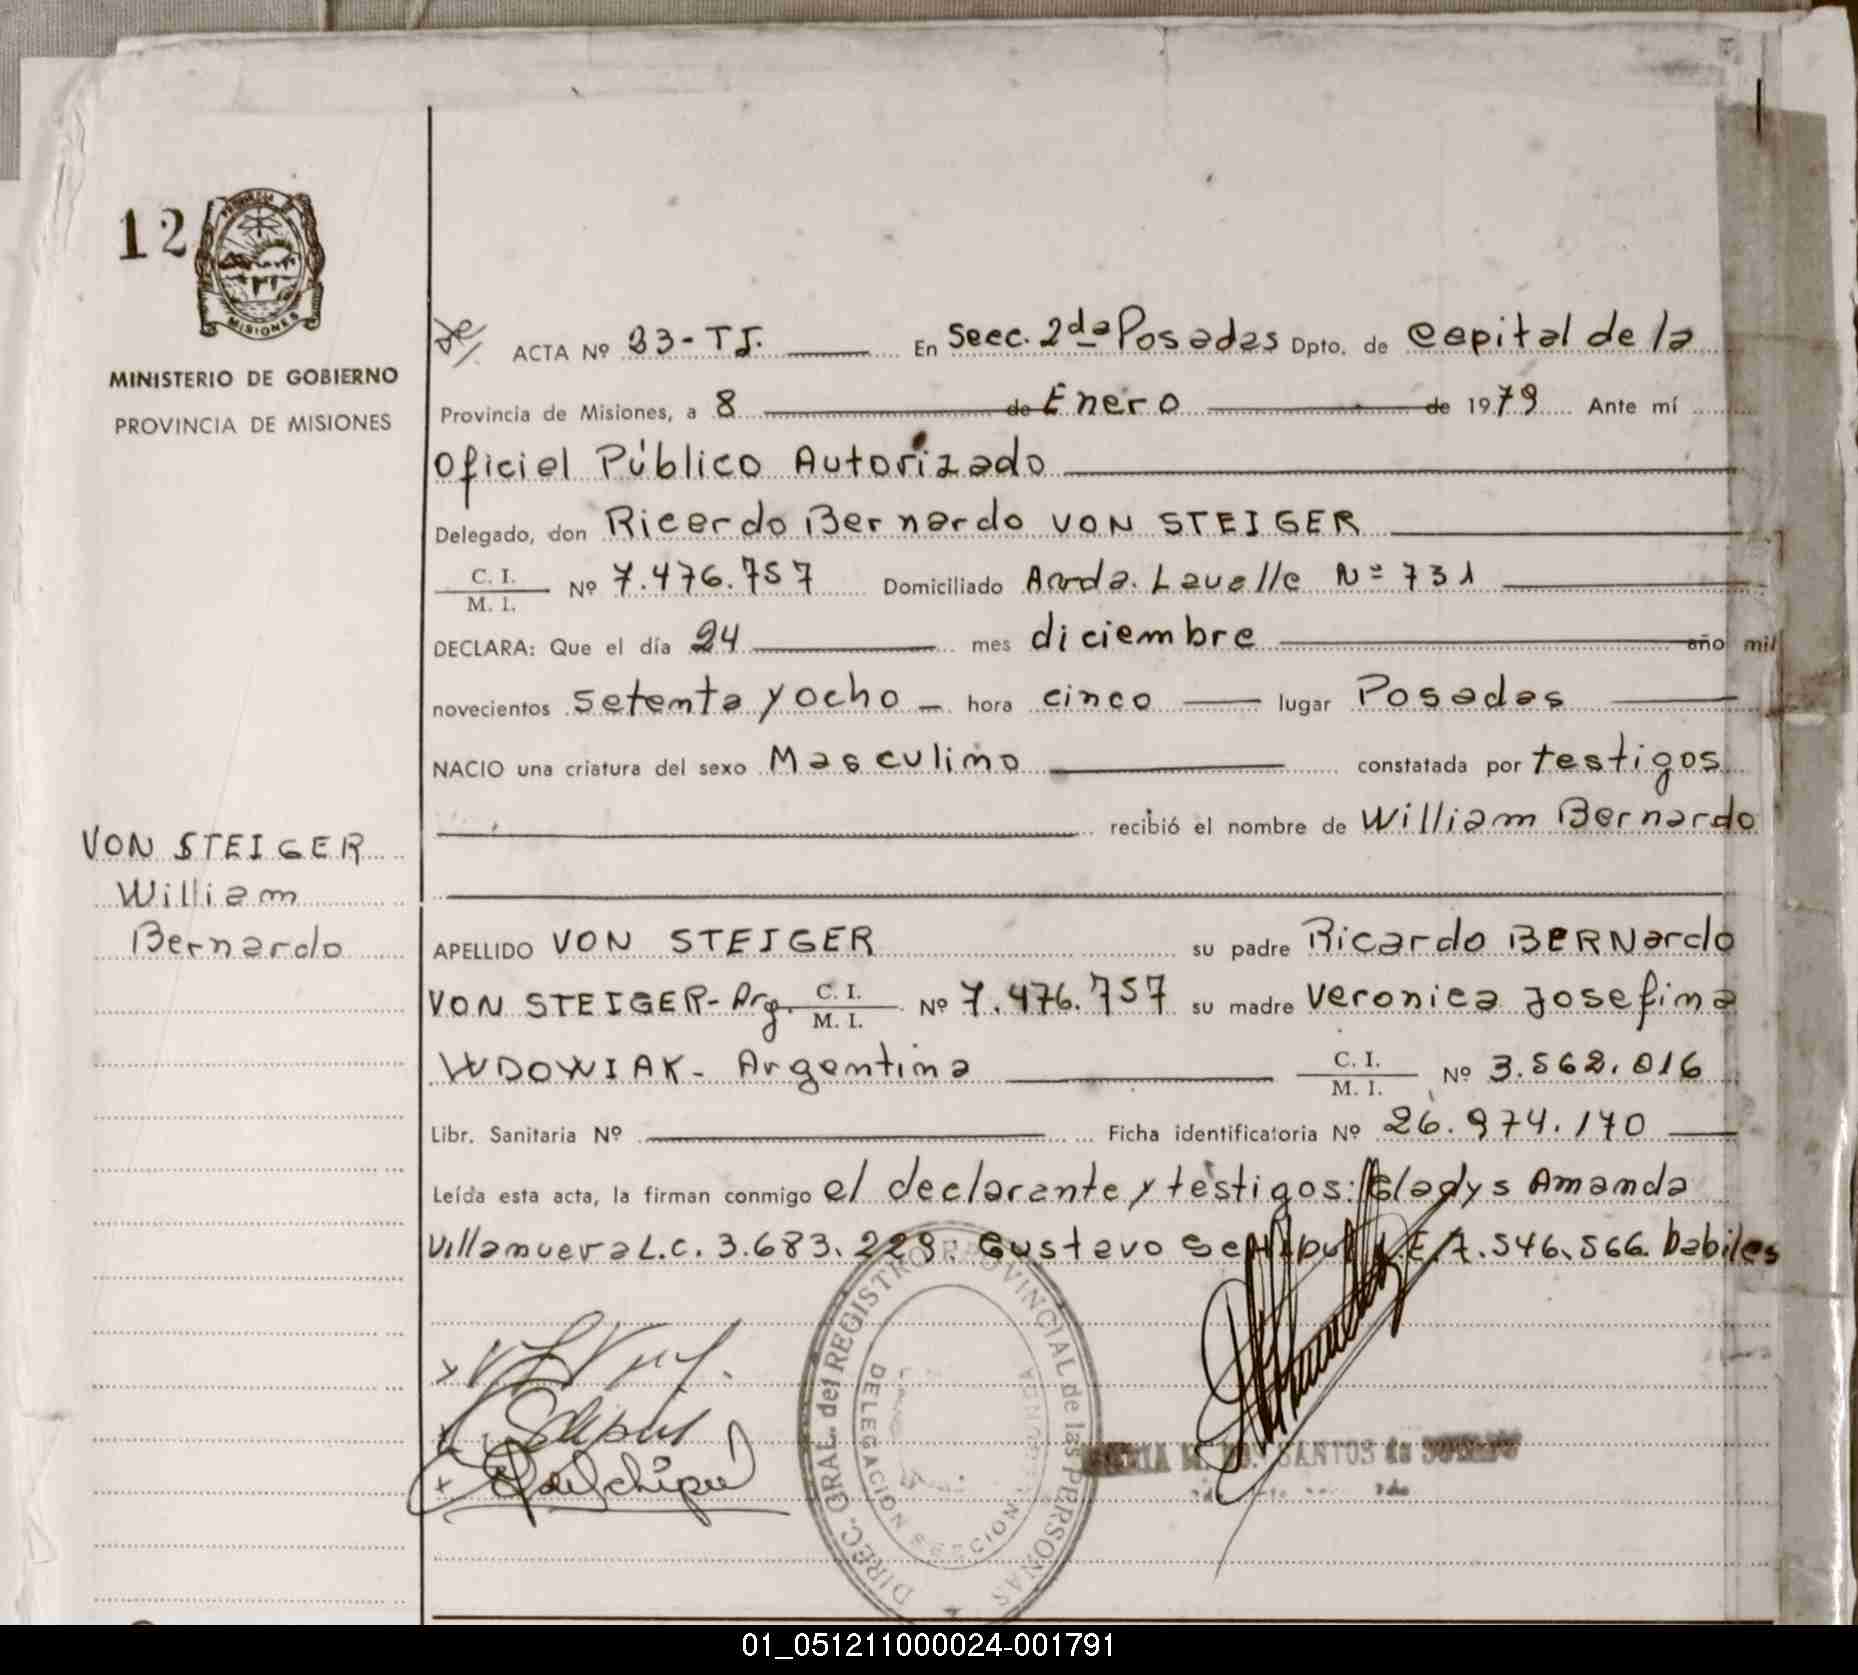 12
PROVINCIA
MISIONES
MINISTERIO DE GOBIERNO
PROVINCIA DE MISIONES
VON STEIGER
William
Bernardo
ACTA Nº 33-TJ. En Secc. 2da Posadas Dpto. de Capital de la
Provincia de Misiones, a 8 de Enero de 1979 Ante mí
Oficial Público Autorizado
Delegado, don Ricardo Bernardo VON STEIGER
C. I. / M. I. Nº 7.476.757 Domiciliado Avda. Lavalle Nº 731
DECLARA: Que el día 24 mes diciembre año mil
novecientos setenta y ocho hora cinco lugar Posadas
NACIO una criatura del sexo Masculino constatada por testigos
recibió el nombre de William Bernardo
APELLIDO VON STEIGER su padre Ricardo BERNArdo
VON STEIGER- Arg. C. I. / M. I. Nº 7.476.757 su madre Veronica Josefina
WDOWIAK- Argentina C. I. / M. I. Nº 3.562.016
Libr. Sanitaria Nº Ficha identificatoria Nº 26.974.170
Leída esta acta, la firman conmigo el declarante y testigos: Gladys Amanda
Villanueva L.C. 3.683.229. Gustavo L.E. 7.546.566. habiles
DIREC. GRAL. del REGISTRO PROVINCIAL de las PERSONAS
DELEGACION SECCION
SANTOS de
01_051211000024-001791